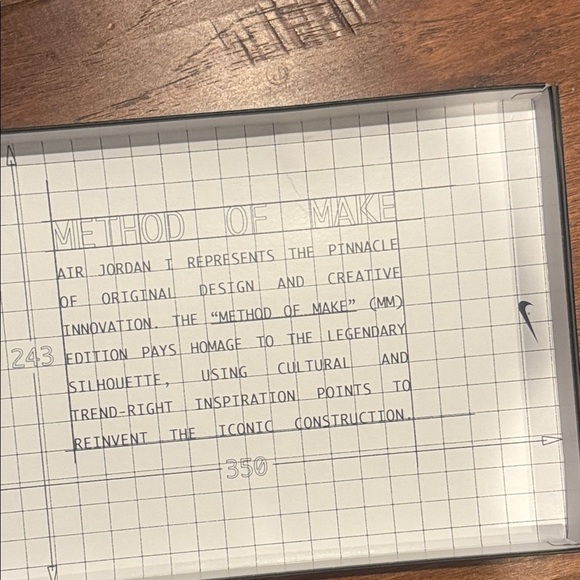 METHOD OF MAKE
AIR JORDAN I REPRESENTS THE PINNACLE
OF ORIGINAL DESIGN AND CREATIVE
INNOVATION. THE “METHOD OF MAKE” (MM)
EDITION PAYS HOMAGE TO THE LEGENDARY
SILHOUETTE, USING CULTURAL AND
TREND-RIGHT INSPIRATION POINTS TO
REINVENT THE ICONIC CONSTRUCTION.
243
350